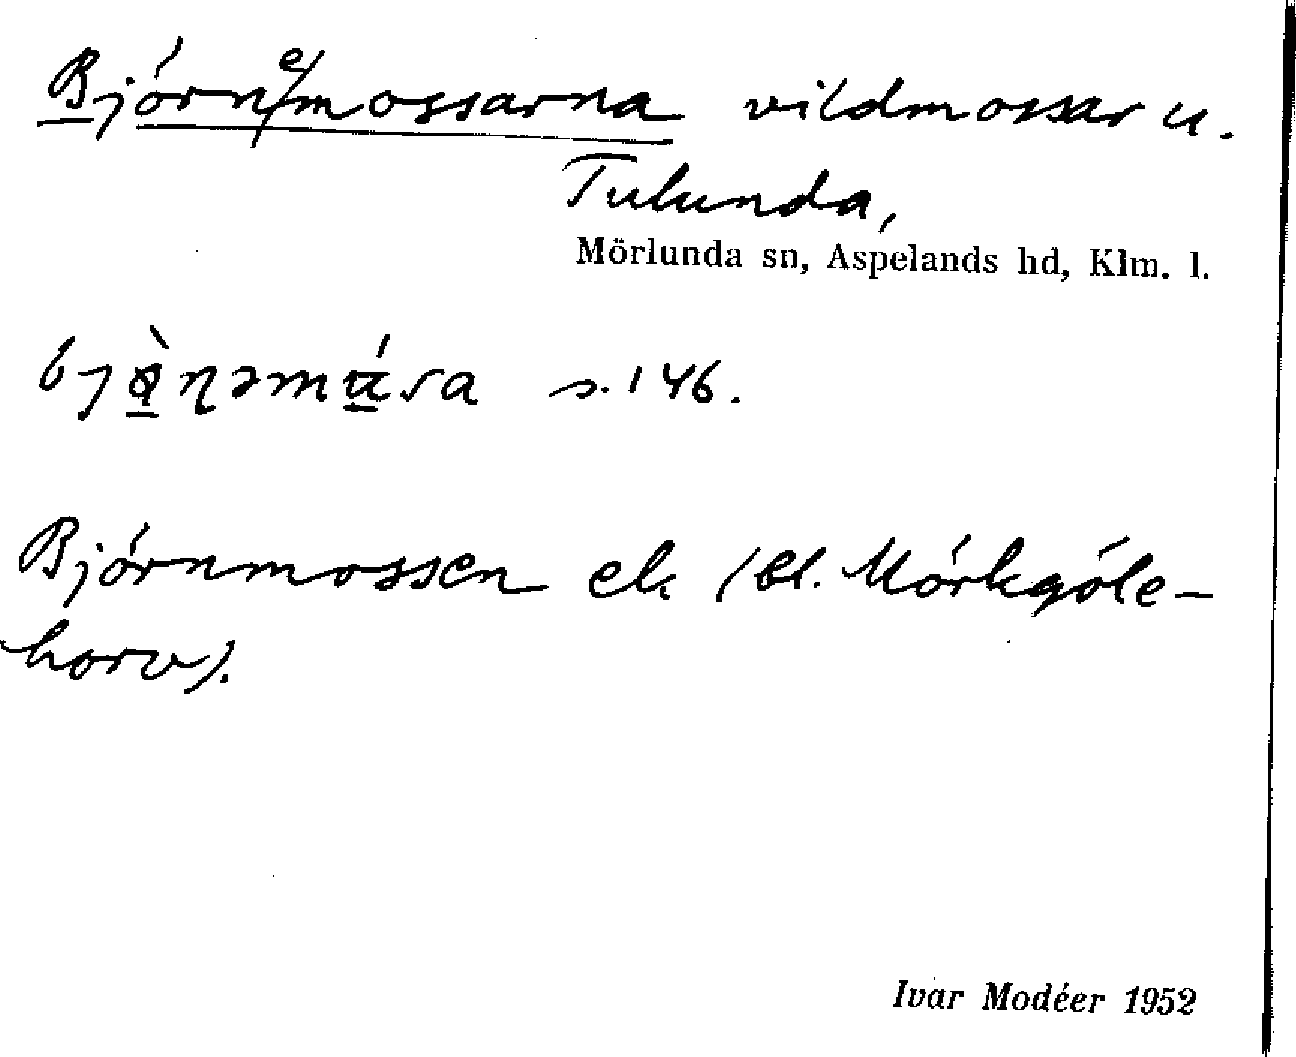 Björnemossarna vildmossar u.
Tulunda,
Mörlunda sn, Aspelands hd, Klm. l.
s. 146.
Björnmossen ek (bl. Mörkgöle-
horv).
Ivar Modéer 1952